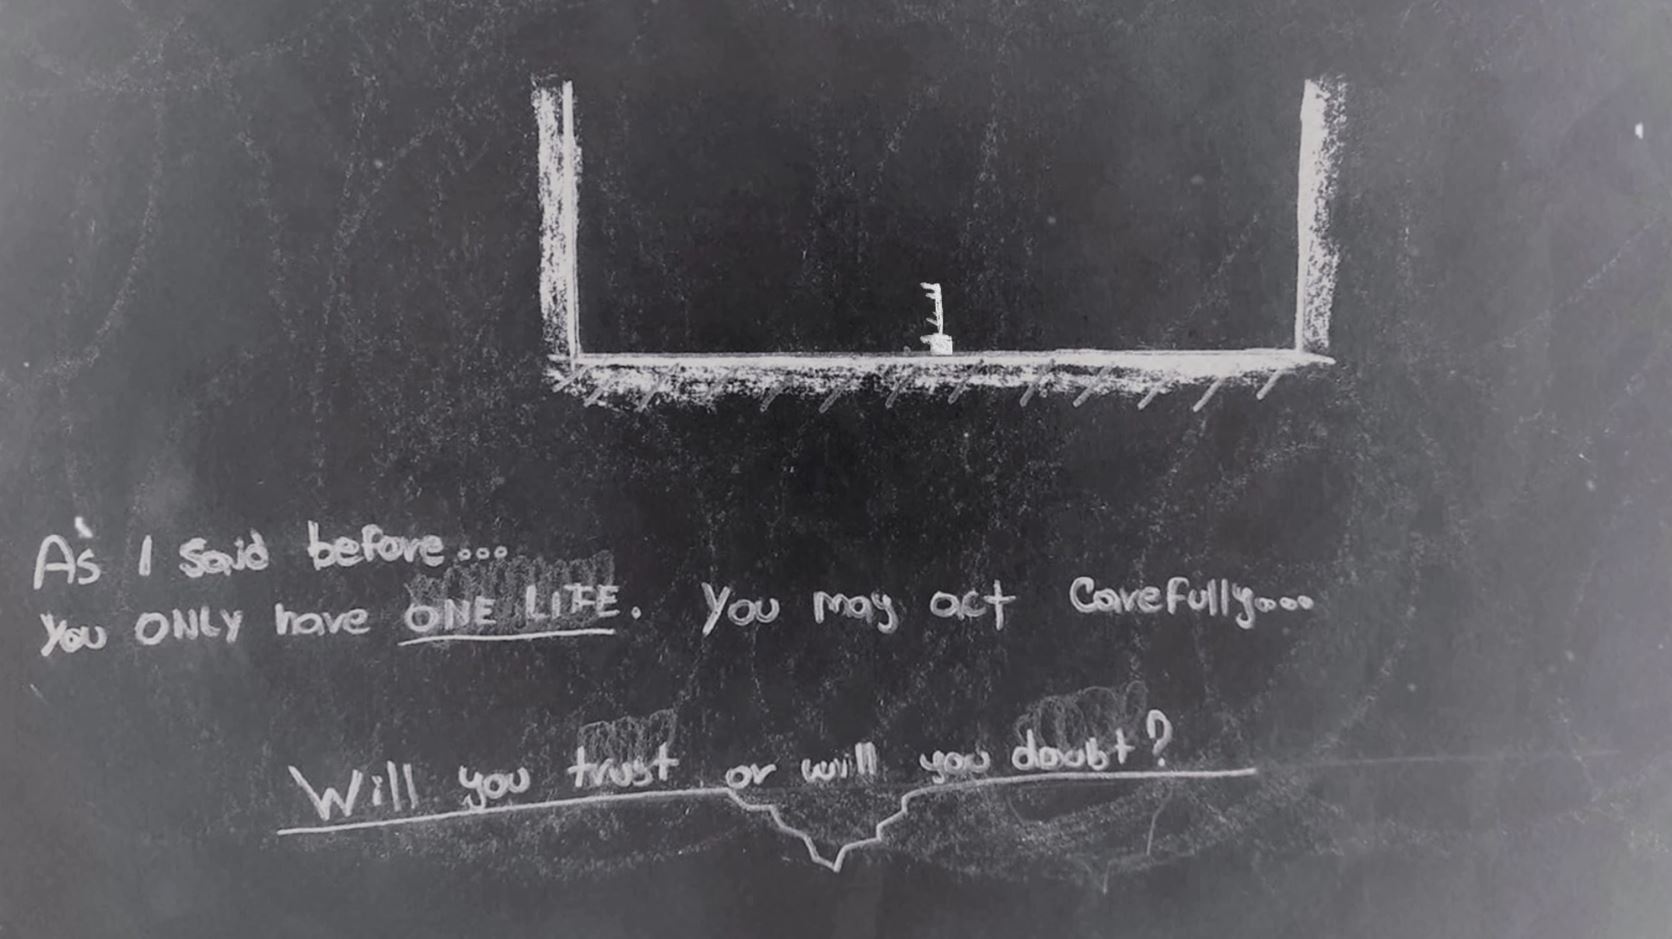 As I said before...
You ONLY have ONE LIFE. You may act carefully...
Will you trust or will you doubt?